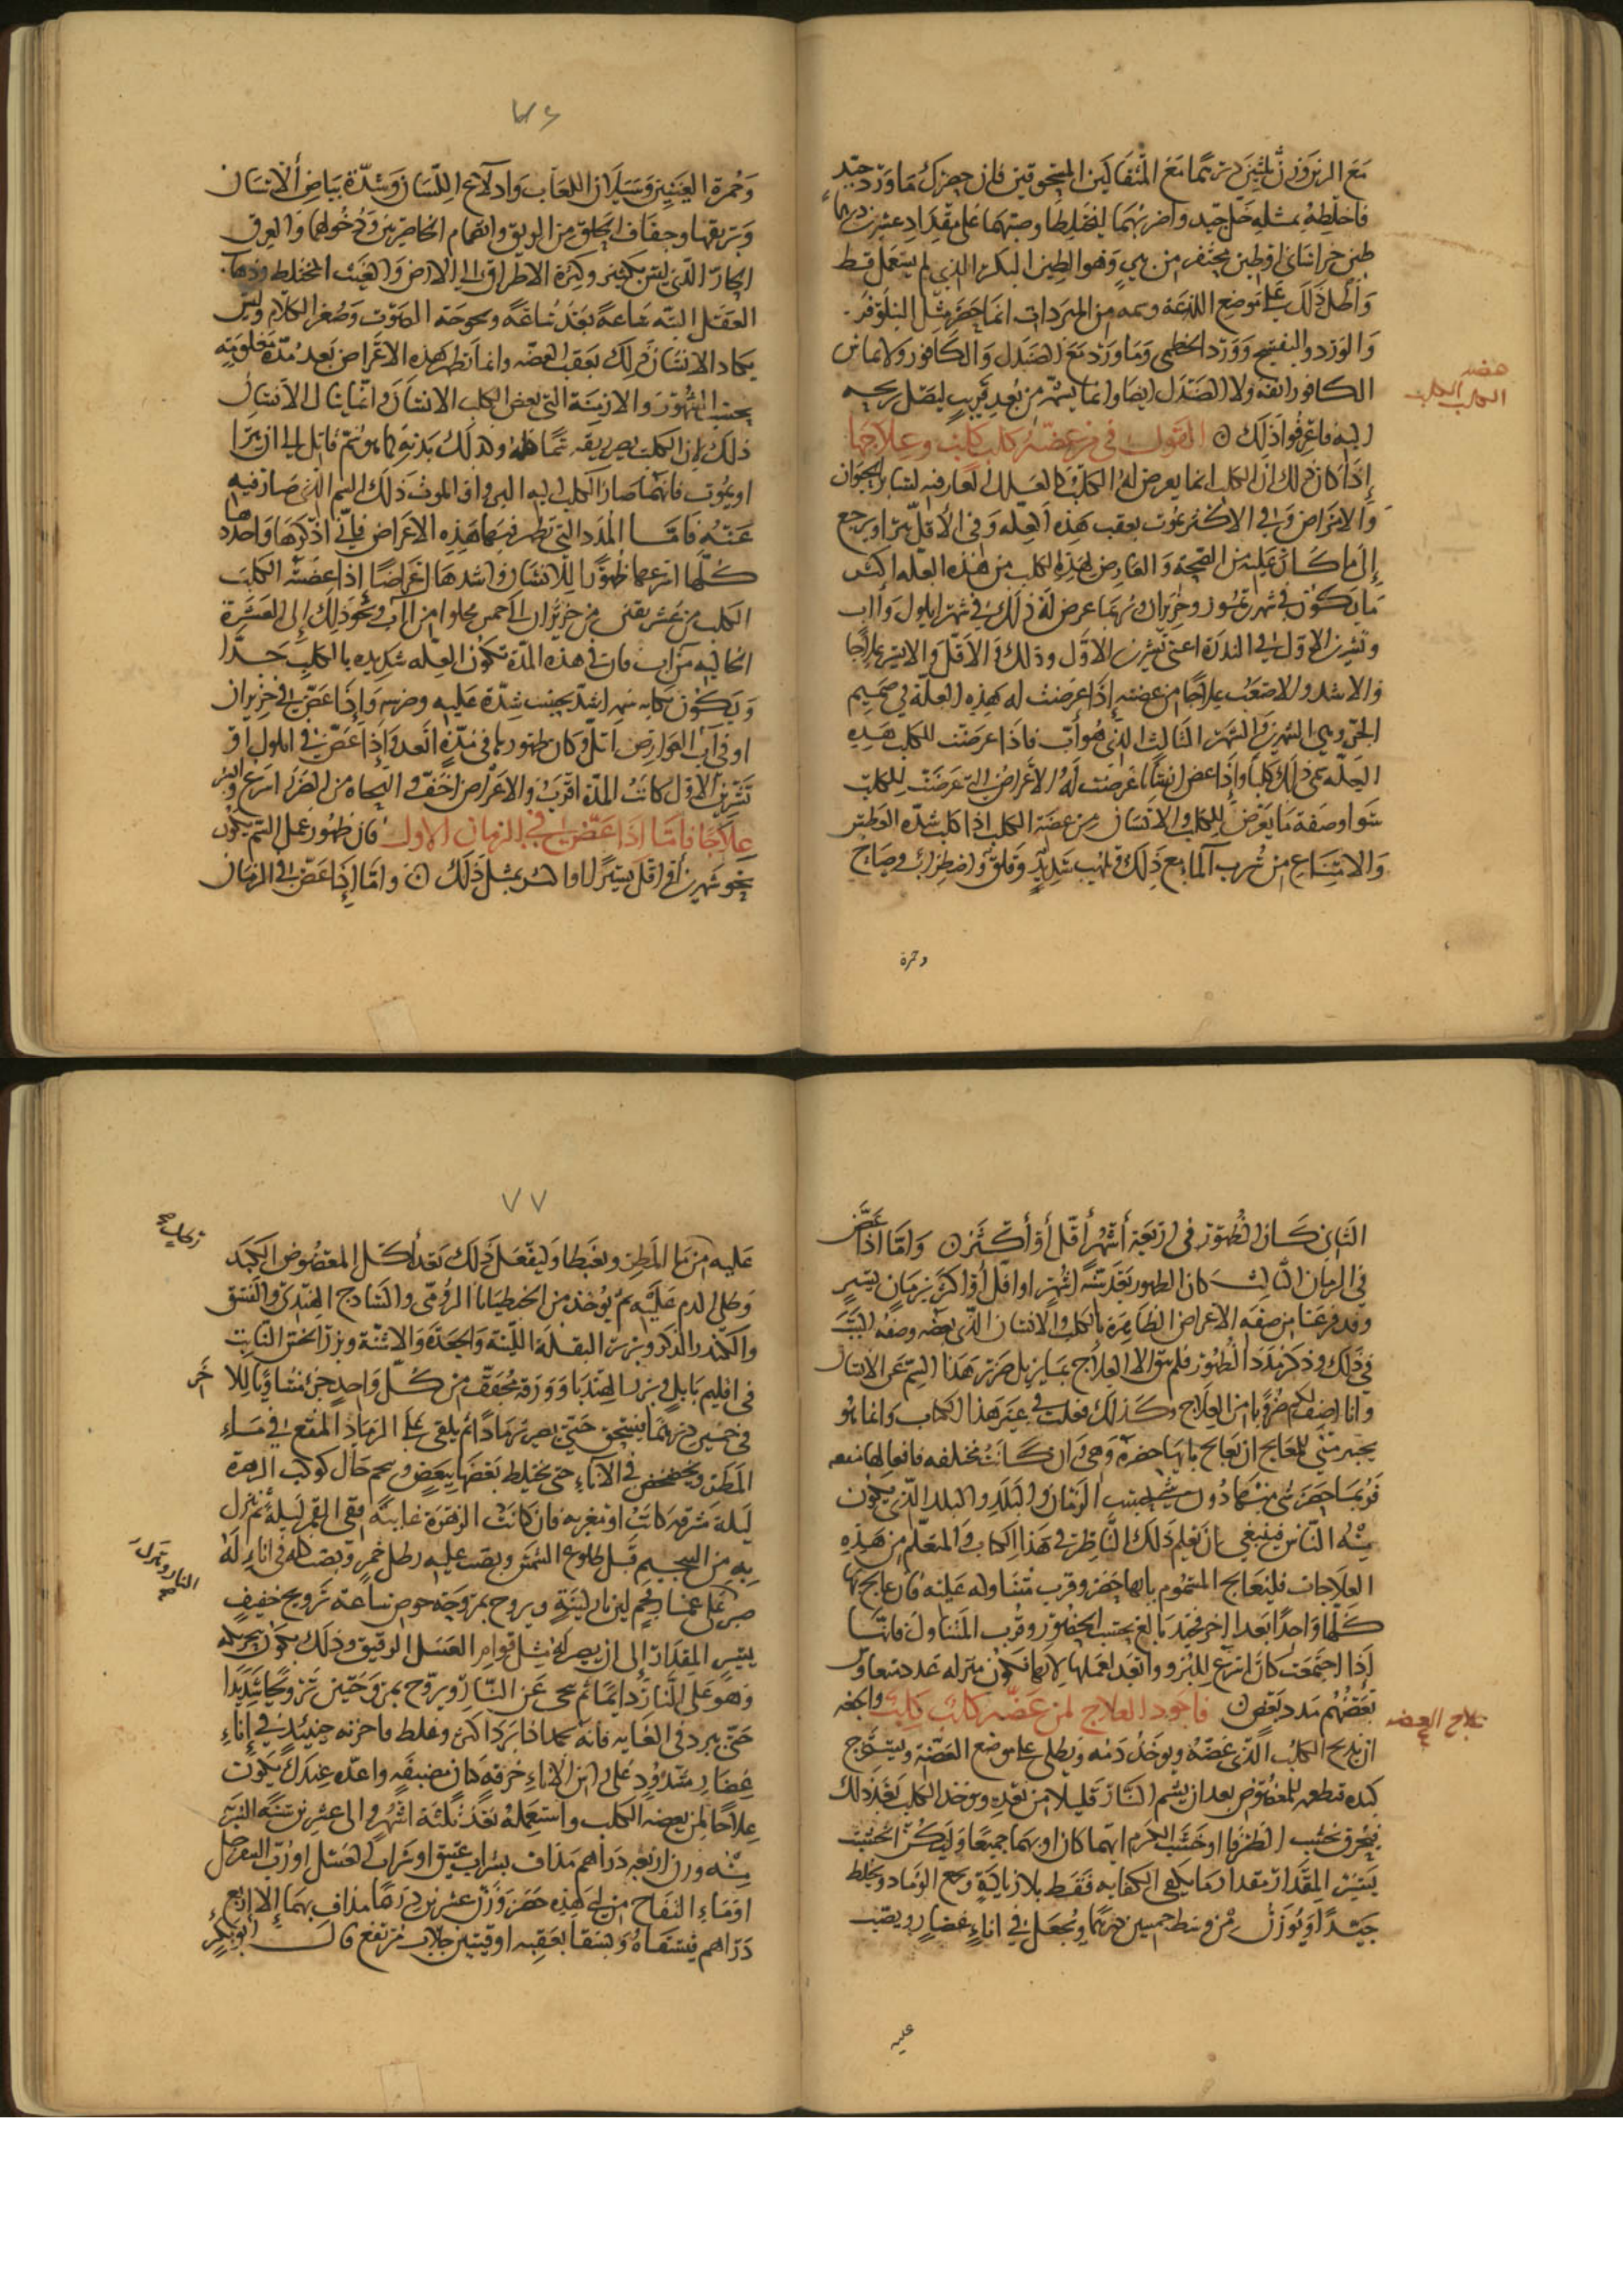 مع الزبر وزن ثلثين درهما مع المثقالين المسحوقين فان حضرك ماورد جيد
فاخلطه بمثله خل جيد واضربهما ليختلطا وصبهما على مقدار عشرين درهما
طين خراسانى او طين يحتفر من وهو الطين البكر الذى لم يستعمل قط
واطل ذلك على موضع اللدغة من المبردات انما حضر مثل النيلوفر
والورد والبنفسج وورد الخطمى وماورد مع الصندل والكافور ولا يماس
الكافور انفه ولا الصندل ايضا وانما يشم من بعد قريب ليصل ريحه
اليه فاعرفوا ذلك القول فى من عضه كلب كلب وعلاجها
عضة
الكلب الكلب
اذا كان ذلك ان الكلب انما يعرض له الكلب كالعلل العارضة لسائر الحيوان
والامراض وفى الاكثر يموت بعقب هذه العلة وفى الاقل يبرا ويرجع
الى ما كان عليه من الصحة والعارض لهذه الكلب من هذه العلة اكثر
ما يكون فى شهر تموز وحزيران وربما عرض له ذلك فى شهر ايلول وآب
وتشرين الاول فى الندرة اعنى تشرين الاول وذلك فى الاقل والايسر علاجا
والاشد والاصعب علاجا من عضته اذا عرضت له هذه العلة فى صميم
الحر وهى الشهرين والشهر الثالث الذى هو آب فاذا عرضت للكلب هذه
العلة سمى ذلك كلبا واذا عض انسانا عرضت له الاعراض التى عرضت للكلب
سوا وصفة ما يعرض للكلب والانسان من عضة الكلب اذا كلب شدة العطش
والامتناع من شرب الما مع ذلك لهيب شديد وقلق واضطراب وصياح
وحمرة
٧٦
وحمرة العينين وسيلان اللعاب وادلاع اللسان وشدة بياض الاسنان
وبريقها وجفاف الحلق من الريق وانضمام الخاصرتين ودخولهما والعرق
الحار الذى ليس بكثير وكثرة الاطراق الى الارض والعبث المختلط وذهاب
العقل البتة ساعة بعد ساعة وبحوحة الصوت وصغر الكلام وليس
يكاد الانسان ذلك بعقب العضة وانما تظهر هذه الاعراض بعد مدة معلومة
بحسب الشهور والازمنة التى يعض الكلب الانسان وانما ينال الانسان
ذلك لان الكلب يصير ريقه سما قاتل الى ان يبرا
او يموت
عنه فاما المدد التى تظهر فيها هذه الاعراض فانى اذكرها واحددها
كلها اسرعها ظهورا للانسان واشدها اعراضا اذا عضه الكلب
الكلب من عشر تبقى من حزيران الى خمس يخلوا من آب ونحو ذلك الى العشرة
الخالية من آب فان فى هذه المدة تكون العلة شديدة بالكلب جدا
ويكون نكاية سمه اشد بحسب شدة عليه وضره واذا عض فى حزيران
او فى آب العوارض اقل وكان ظهورها فى مدة ابعد واذا عض فى ايلول او
تشرين الاول كانت المدة اقرب والاعراض اخف والنجاة من الضرر اسرع وايسر
علاجا فاما اذا عض فى الزمان الاول فان ظهور عمل السم يكون
نحو شهرين او اقل يسيرا او اكثر بمثل ذلك واما اذا عض فى الزمان
الثانى كان الظهور فى اربعة اشهر اقل او اكثر واما اذا عض
فى الزمان الثالث كان الظهور بعد ستة اشهر او اقل او اكثر بزمان يسير
وقد فرغنا من صفة الاعراض الظاهرة بالكلب والانسان الذى يعضه وصفة السبب
فى ذلك وذكر مدد الظهور فلم يبق الا العلاج بما يزيل ضرر هذا السم عن الانسان
وانا اصف لكم ضروبا من العلاج وكذلك فعلت فى غير هذا الكتاب وانما هو
يخير منى للمعالج ان يعالج بايها حضره وهى وان كانت مختلفة فافعالها
فربما حضر شى منها دون شى بحسب الزمان والبلد والبلد الذى يكون
فيه الناس فينبغى ان يعلم ذلك الناظر فى هذا الكتاب والمتعلم من هذه
العلاجات فليعالج المسموم بايها حضر وقرب متناوله عليه فان عالج بها
كلها واحدا بعد اخر فجيد بالغ بحسب الحضور وقرب المتناول فانها
اذا اجتمعت كان اسرع للبرو وابعد لعملها لانها تكون بمنزلة عدد تعاون
بعضهم مدد بعض فاجود العلاج لمن عضه كلب كلب وانجعه
علاج العضة
ان يذبح الكلب الذى عضه ويوخذ دمه ويطلى على موضع العضة ويستخرج
كبده فتطعم للمعضوض بعد ان يشم النار قليلا من بعد ويوخذ الكلب بعد ذلك
فيحرق بخشب الطرفا او خشب الكرم ايهما كان او بهما جميعا وليكن الخشب
يسير المقدار مقدار ما يكفى الكفاية فقط بلا زيادة ويجمع الرماد ويخلط
جيدا ويوزن من وسطه خمسين درهما ويجعل فى اناء غضار ويصب
عليه
٧٧
عليه من ما المطر ويغطا وليفعل ذلك بعد اكل المعضوض الكبد
وطلى الدم عليه ثم يوخذ من الجنطيانا الرومى والساذج الهندى والفستق
والكندر الذكر وبزر البقلة اللينة والجعدة والاشنة وبزر الخس النابت
فى اقليم بابل وبزر الهندبا وورقه مجفف من كل واحد جزء متساويا للاخر
فى خمسين درهما ينسحق حتى يصير رمادا ثم يلقى على الرماد المنقع فى ماء
المطر ويخضخض فى الاناء حتى يختلط بعضها ببعض وينجم حيال كوكب الزهرة
ليلة مشرقة كانت او مغربة فان كانت الزهرة غايبة ففى القمر ليلة ثم ينزل
به من التنجيم قبل طلوع الشمس ويصب عليه رطل خمر ويصب كله فى اناء له
النار وتترك
صبر على نار فحم لين نار لينة ويروح بمروحة خوص ساعة ترويح خفيف
يسير المقدار الى ان يصير كله مثل قوام العسل الرقيق وذلك يكون بحركة
وهو على النار دايما ثم ينحى عن النار ويروح بمروحتين ترويحا شديدا
حتى يبرد فى الغاية فانه يجمد اذا برد اكثر وغلظ فاخزنه حينئذ فى اناء
غضار مشدود على راس الاناء خرقة كتان صفيقة واعده عندك يكون
علاجا لمن يعضه الكلب واستعمله بعد ثلثة اشهر والى عشرين سنة الشربة
منه وزن اربعة دراهم مذاف بشراب عتيق او شراب العسل او رب السفرجل
او ماء التفاح من اى هذه حضر وزن عشرين درهما مذاف بهما الاربع
دراهم فيسقاه ويسقا بعقبه اوقيتين جلاب مرتفع قال ابو بكر